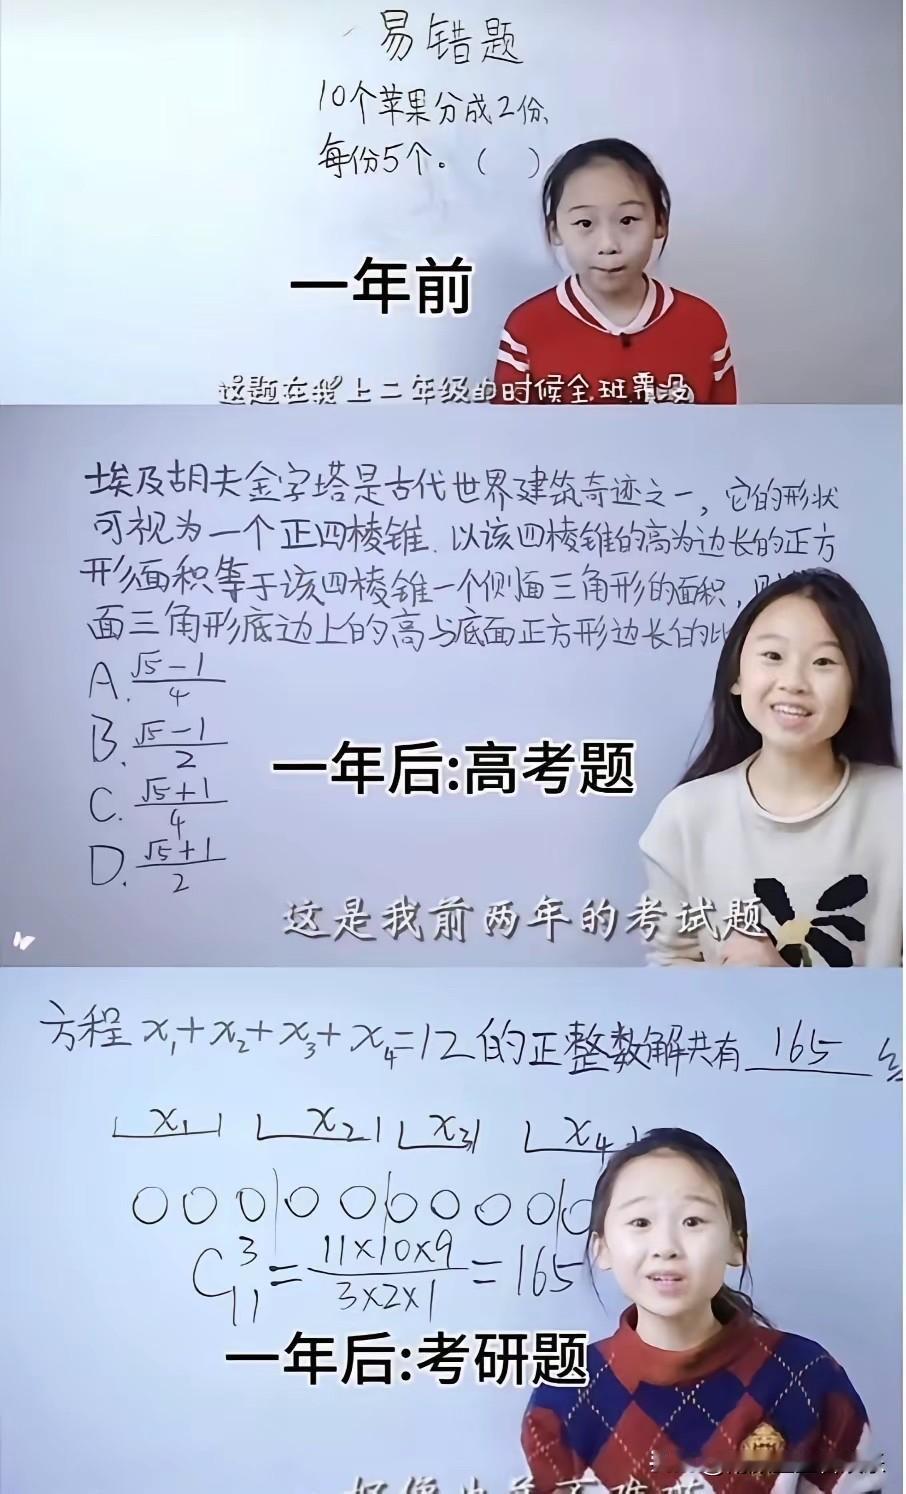 易错题
10个苹果分成2份,
每份5个。( )
一年前
这题在我上二年级的时候全班覆没
埃及胡夫金字塔是古代世界建筑奇迹之一,它的形状
可视为一个正四棱锥.以该四棱锥的高为边长的正方
形面积等于该四棱锥一个侧面三角形的面积,则
面三角形底边上的高与底面正方形边长的比
A. (√5-1)/4
B. (√5-1)/2
一年后:高考题
C. (√5+1)/4
D. (√5+1)/2
这是我前两年的考试题
方程 x₁+x₂+x₃+x₄=12的正整数解共有 165
x₁ x₂ x₃ x₄
C₁₁³ = (11×10×9)/(3×2×1) = 165
一年后:考研题